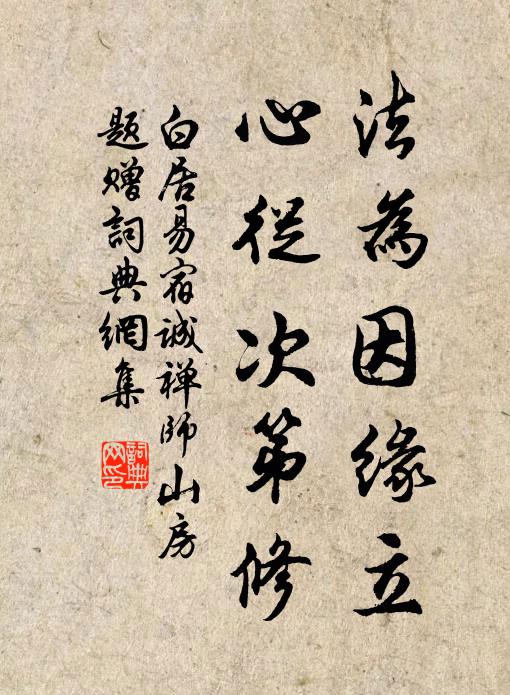 法為因緣立
心從次第修
白居易宿誠禅師山房
題贈詞典網集
詞典
网印